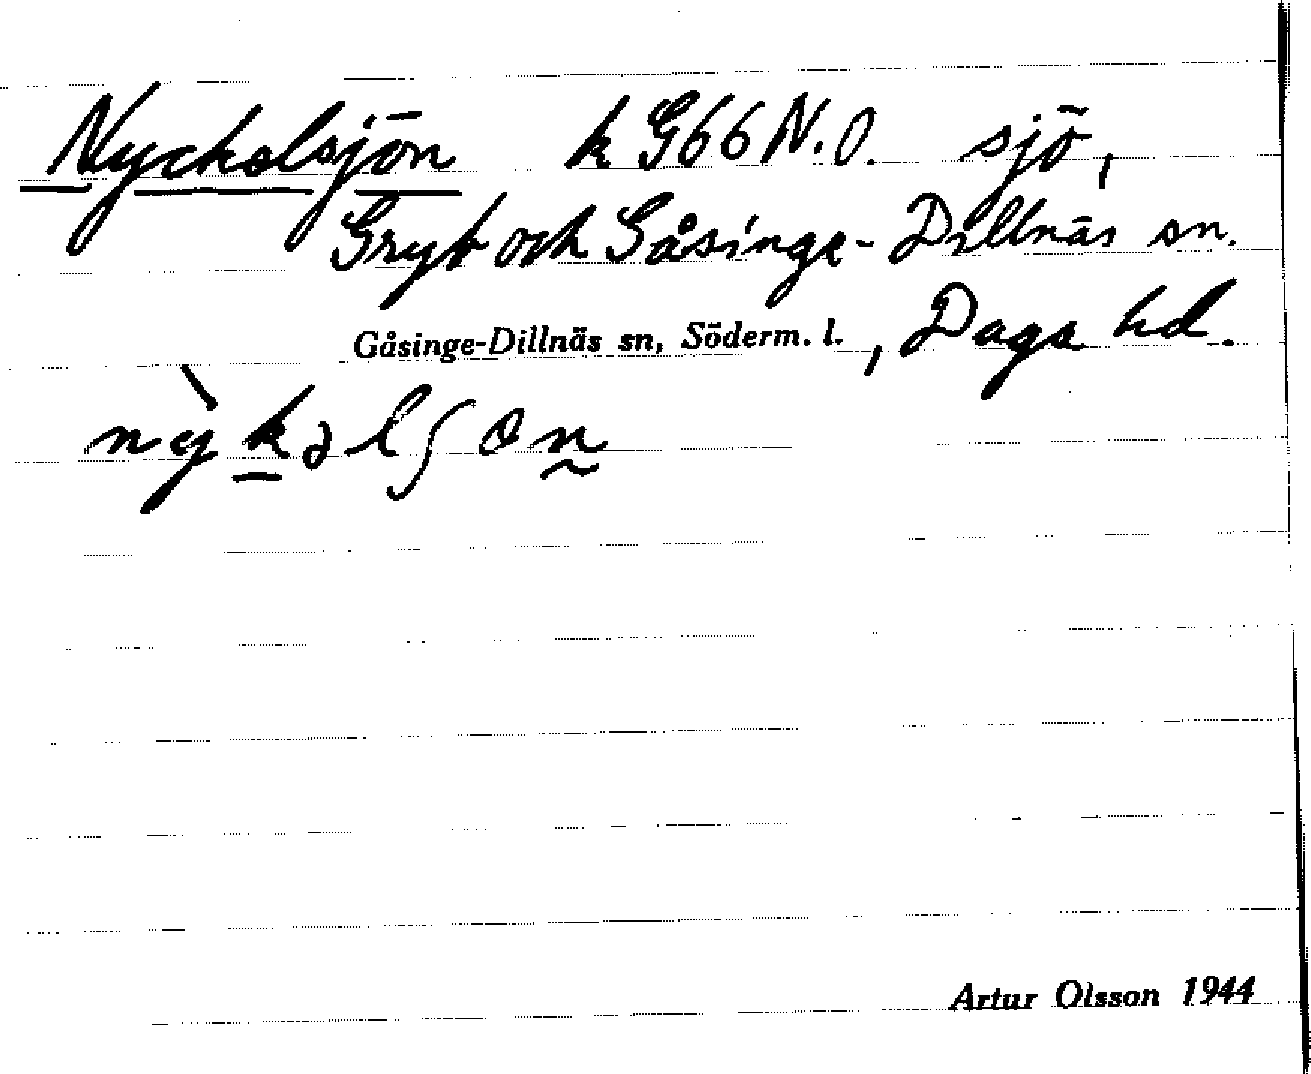 Nyckelsjön k G66 N.O. sjö,
Gryt och Gåsinge-Dillnäs sn.
Gåsinge-Dillnäs sn, Söderm. l., Daga hd.
Artur Olsson 1944